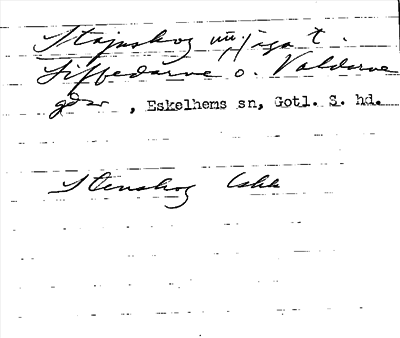 Stajnskog m. fl. äga t.
Siffedarve o. Valdarve
gdr, Eskelhems sn, Gotl. S. hd.
Stenskog